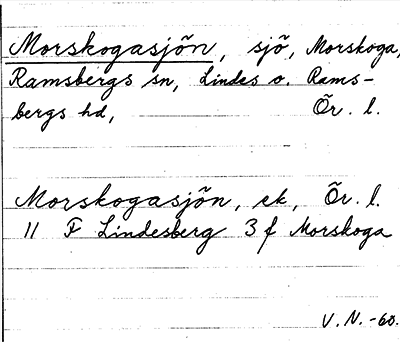 Morskogasjön, sjö, Morskoga,
Ramsbergs sn, Lindes o. Rams-
bergs hd, Ör. l.
Morskogasjön, ek, Ör. l.
11 F Lindesberg 3 f Morskoga
V. N. -60.